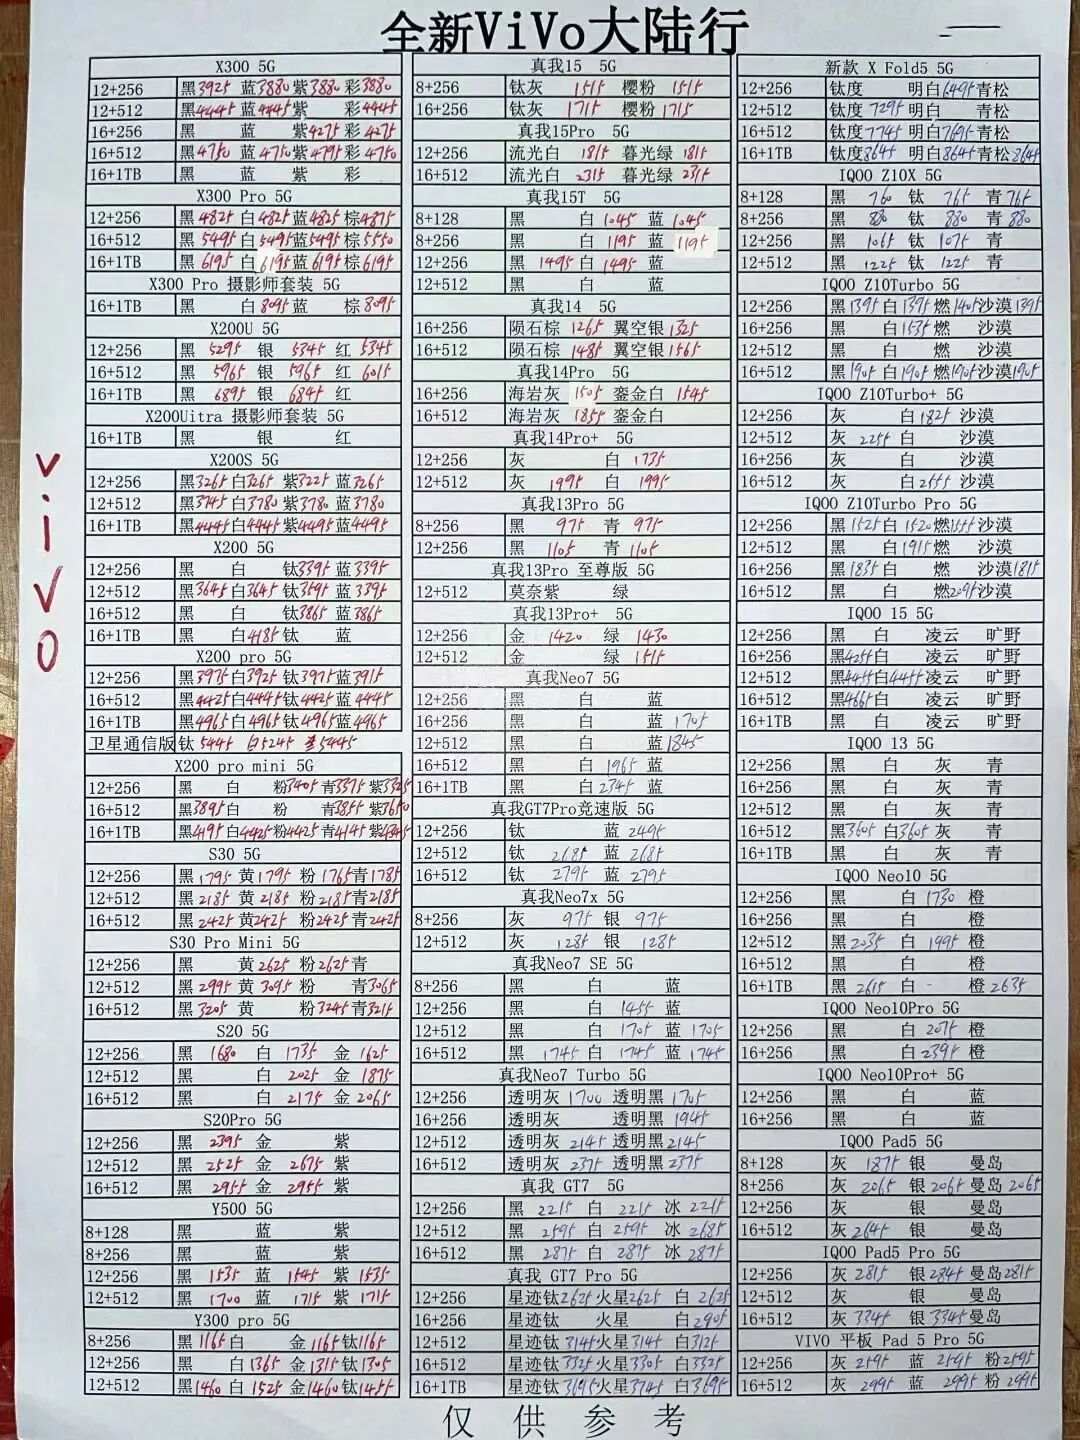 全新ViVo大陆行
ViVO
X300 5G
12+256 黑3925 蓝3880 紫3880 彩3880
12+512 黑4445 蓝4445 紫 彩4445
16+256 黑 蓝 紫4275 彩4275
16+512 黑4750 蓝4750 紫4795 彩4750
16+1TB 黑 蓝 紫 彩
X300 Pro 5G
12+256 黑4825 白4825 蓝4825 棕4875
16+512 黑5495 白5495 蓝5495 棕5550
16+1TB 黑6195 白6195 蓝6195 棕6195
X300 Pro 摄影师套装 5G
16+1TB 黑 白8095 蓝 棕8095
X200U 5G
12+256 黑 5295 银 5345 红 5345
16+512 黑 5965 银 5965 红 6015
16+1TB 黑 6895 银 6845 红
X200Uitra 摄影师套装 5G
16+1TB 黑 银 红
X200S 5G
12+256 黑3265 白3265 紫3225 蓝3265
12+512 黑3745 白3780 紫3780 蓝3780
16+1TB 黑4445 白4445 紫4495 蓝4495
X200 5G
12+256 黑 白 钛3395 蓝3395
12+512 黑3645 白3645 钛3595 蓝3395
16+512 黑 白 钛3865 蓝3865
16+1TB 黑 白4185 钛 蓝
X200 pro 5G
12+256 黑3975 白3925 钛3975 蓝3915
16+512 黑4425 白4445 钛4425 蓝4445
16+1TB 黑4965 白4965 钛4965 蓝4965
卫星通信版 钛5445 白5245 5445
X200 pro mini 5G
12+256 黑 白 粉3405 青3375 紫3325
16+512 黑3895 白 粉 青3855 紫3650
16+1TB 黑4195 白4425 粉4425 青4145 紫4345
S30 5G
12+256 黑1795 黄1795 粉1765 青1785
12+512 黑2185 黄2185 粉2185 青2185
16+512 黑2425 黄2425 粉2425 青2425
S30 Pro Mini 5G
12+256 黑 黄2625 粉2625 青
12+512 黑2995 黄3095 粉 青3065
16+512 黑3205 黄 粉3245 青3215
S20 5G
12+256 黑 1680 白 1735 金 1625
12+512 黑 白 2025 金 1875
16+512 黑 白 2175 金 2065
S20Pro 5G
12+256 黑 2395 金 紫
12+512 黑 2525 金 2675 紫
16+512 黑 2955 金 2955 紫
Y500 5G
8+128 黑 蓝 紫
8+256 黑 蓝 紫
12+256 黑 1535 蓝 1545 紫 1535
12+512 黑 1700 蓝 1715 紫 1715
Y300 pro 5G
8+256 黑1165 白 金1165 钛1165
12+256 黑 白1365 金1315 钛1305
12+512 黑1460 白1525 金1460 钛1455
真我15 5G
8+256 钛灰 1515 樱粉 1515
16+256 钛灰 1715 樱粉 1715
真我15Pro 5G
12+256 流光白 1815 暮光绿 1815
16+512 流光白 2315 暮光绿 2315
真我15T 5G
8+128 黑 白 1045 蓝 1045
8+256 黑 白 1195 蓝 1195
12+256 黑 1495 白 1495 蓝
12+512 黑 白 蓝
真我14 5G
16+256 陨石棕 1265 翼空银 1325
16+512 陨石棕 1485 翼空银 1565
真我14Pro 5G
16+256 海岩灰 1505 銮金白 1545
16+512 海岩灰 1855 銮金白
真我14Pro+ 5G
12+256 灰 白 1735
12+512 灰 1995 白 1995
真我13Pro 5G
8+256 黑 975 青 975
12+256 黑 1105 青 1105
真我13Pro 至尊版 5G
12+512 莫奈紫 绿
真我13Pro+ 5G
12+256 金 1420 绿 1430
12+512 金 绿 1515
真我Neo7 5G
12+256 黑 白 蓝
16+256 黑 白 蓝 1705
12+512 黑 白 蓝1845
16+512 黑 白 1965 蓝
16+1TB 黑 白 2345 蓝
真我GT7Pro竞速版 5G
12+256 钛 蓝 2495
12+512 钛 2685 蓝 2685
16+512 钛 2795 蓝 2795
真我Neo7x 5G
8+256 灰 975 银 975
12+512 灰 1285 银 1285
真我Neo7 SE 5G
8+256 黑 白 蓝
12+256 黑 白 1455 蓝
12+512 黑 白 1705 蓝 1705
16+512 黑 1745 白 1745 蓝 1745
真我Neo7 Turbo 5G
12+256 透明灰 1700 透明黑 1705
16+256 透明灰 透明黑 1945
12+512 透明灰 2145 透明黑 2145
16+512 透明灰 2375 透明黑 2375
真我 GT7 5G
12+256 黑 2215 白 2215 冰 2215
12+512 黑 2595 白 2595 冰 2685
16+512 黑 2875 白 2875 冰 2875
真我 GT7 Pro 5G
12+256 星迹钛2625 火星2625 白 2625
16+256 星迹钛 火星 白2905
12+512 星迹钛3145 火星3145 白3125
16+512 星迹钛3325 火星3305 白3325
16+1TB 星迹钛3695 火星3745 白3695
新款 X Fold5 5G
12+256 钛度 明白6495 青松
12+512 钛度 7295 明白 青松
16+512 钛度7745 明白7695 青松
16+1TB 钛度8645 明白8645 青松8645
IQOO Z10X 5G
8+128 黑 760 钛 765 青 765
8+256 黑 880 钛 880 青 880
12+256 黑 1065 钛 1075 青
12+512 黑 1225 钛 1225 青
IQOO Z10Turbo 5G
12+256 黑1395 白1395 燃1405 沙漠1395
16+256 黑 白1535 燃 沙漠
12+512 黑 白 燃 沙漠
16+512 黑1905 白1905 燃1905 沙漠1905
IQOO Z10Turbo+ 5G
12+256 灰 白1825 沙漠
12+512 灰 2255 白 沙漠
16+256 灰 白 沙漠
16+512 灰 白2555 沙漠
IQOO Z10Turbo Pro 5G
12+256 黑1525 白1520 燃1555 沙漠
12+512 黑 白1915 燃 沙漠
16+256 黑1835 白 燃 沙漠1815
16+512 黑 白 燃2095 沙漠
IQOO 15 5G
12+256 黑 白 凌云 旷野
16+256 黑4255 白 凌云 旷野
12+512 黑4455 白4455 凌云 旷野
16+512 黑4665 白 凌云 旷野
16+1TB 黑 白 凌云 旷野
IQOO 13 5G
12+256 黑 白 灰 青
16+256 黑 白 灰 青
12+512 黑 白 灰 青
16+512 黑3605 白3605 灰 青
16+1TB 黑 白 灰 青
IQOO Neo10 5G
12+256 黑 白 1730 橙
16+256 黑 白 橙
12+512 黑 2035 白 1995 橙
16+512 黑 白 橙
16+1TB 黑 2615 白 - 橙 2635
IQOO Neo10Pro 5G
12+256 黑 白 2075 橙
16+256 黑 白 2395 橙
IQOO Neo10Pro+ 5G
12+256 黑 白 蓝
16+256 黑 白 蓝
IQOO Pad5 5G
8+128 灰 1875 银 曼岛
8+256 灰 2065 银 2065 曼岛 2065
12+256 灰 银 曼岛
16+512 灰 2645 银 曼岛
IQOO Pad5 Pro 5G
12+256 灰 2815 银 2845 曼岛2815
12+512 灰 银 曼岛
16+512 灰 3345 银 3345 曼岛
VIVO 平板 Pad 5 Pro 5G
12+256 灰 2595 蓝 2595 粉 2595
16+512 灰 2995 蓝 2995 粉 2995
仅供参考